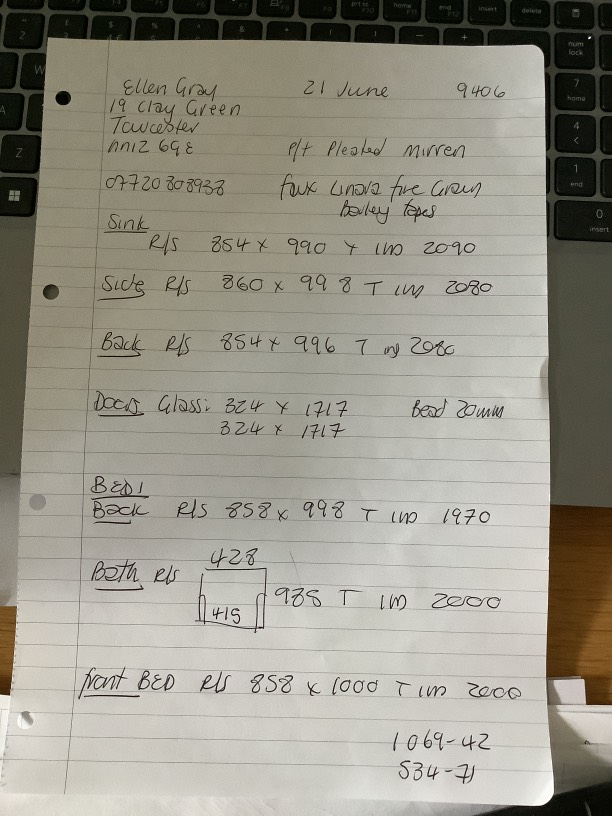 Ellen Gray 21 June 9406
19 Clay Green
Towcester
NN12 6GE P/t Pleated Mirren
07720 808938 faux fire
tapes
Sink
R/S 854 x 990 T IM 2090
Side R/S 860 x 998 T IM 2080
Back R/S 854 x 996 T 2080
Doors Glass: 324 x 1717 Bead 20mm
324 x 1717
BED1
Back R/S 858 x 998 T IM 1970
428
Both R/S 985 T IM 2000
415
front BED R/S 858 x 1000 T IM 2000
1069-42
534-71